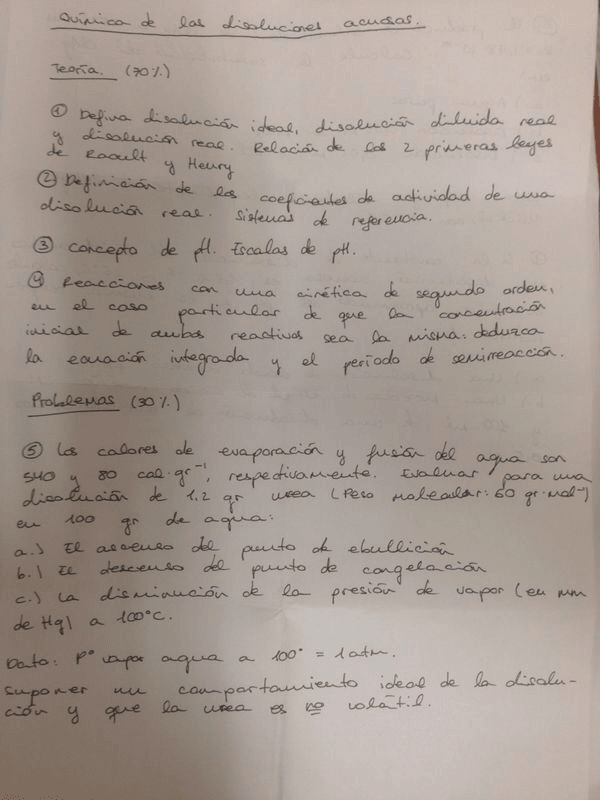 Química de las disoluciones acuosas.
Teoría. (70%)
① Defina disolución ideal, disolución diluida real
y disolución real. Relación de las 2 primeras leyes
de Raoult y Henry
② Definición de los coeficientes de actividad de una
disolución real. Sistemas de referencia.
③ Concepto de pH. Escalas de pH.
④ Reacciones con una cinética de segundo orden,
en el caso particular de que la concentración
inicial de ambos reactivos sea la misma: deduzca
la ecuación integrada y el período de semirreacción.
Problemas (30%)
⑤ Los calores de evaporación y fusión del agua son
540 y 80 cal·gr⁻¹, respectivamente. Evaluar para una
disolución de 1,2 gr urea (Peso Molecular: 60 gr·mol⁻¹)
en 100 gr de agua:
a.) El ascenso del punto de ebullición
b.) El descenso del punto de congelación
c.) La disminución de la presión de vapor (en mm
de Hg) a 100°C.
Dato: P° vapor agua a 100° = 1 atm.
Suponer un comportamiento ideal de la disolu-
ción y que la urea es no volátil.